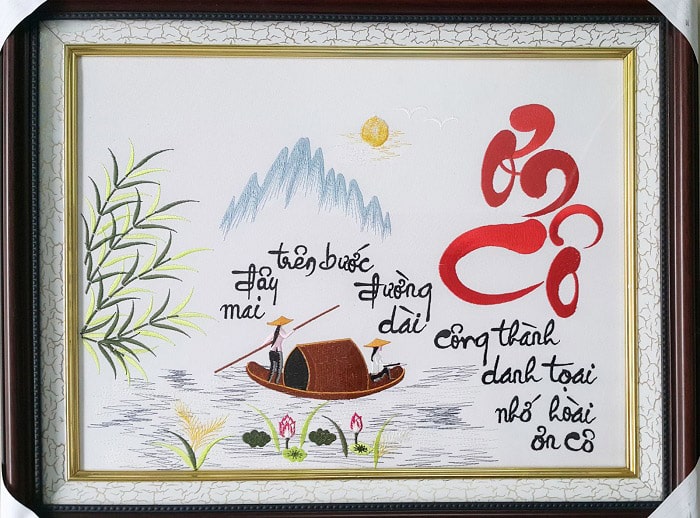 ơn
Cô
mai
đây
trên bước
đường
dài
công thành
danh tọai
nhớ hoài
ơn cô